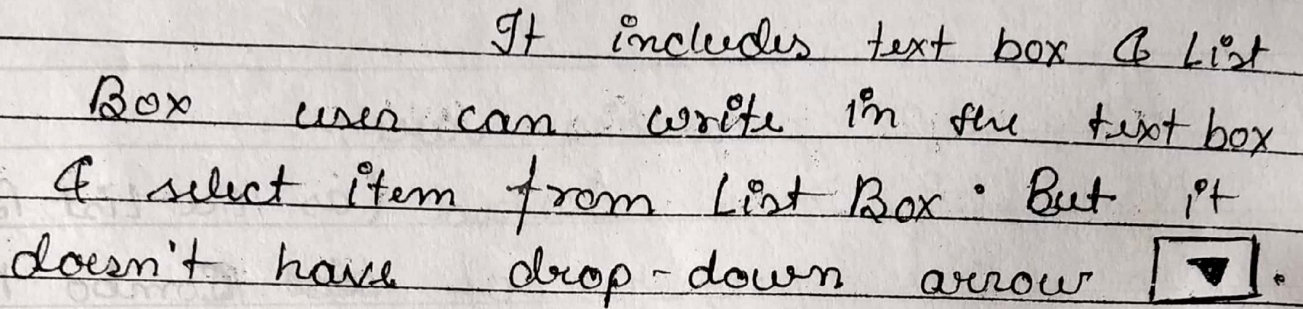 It includes text box & List
Box user can write in the text box
& select item from List Box. But it
doesn't have drop-down arrow ▼.